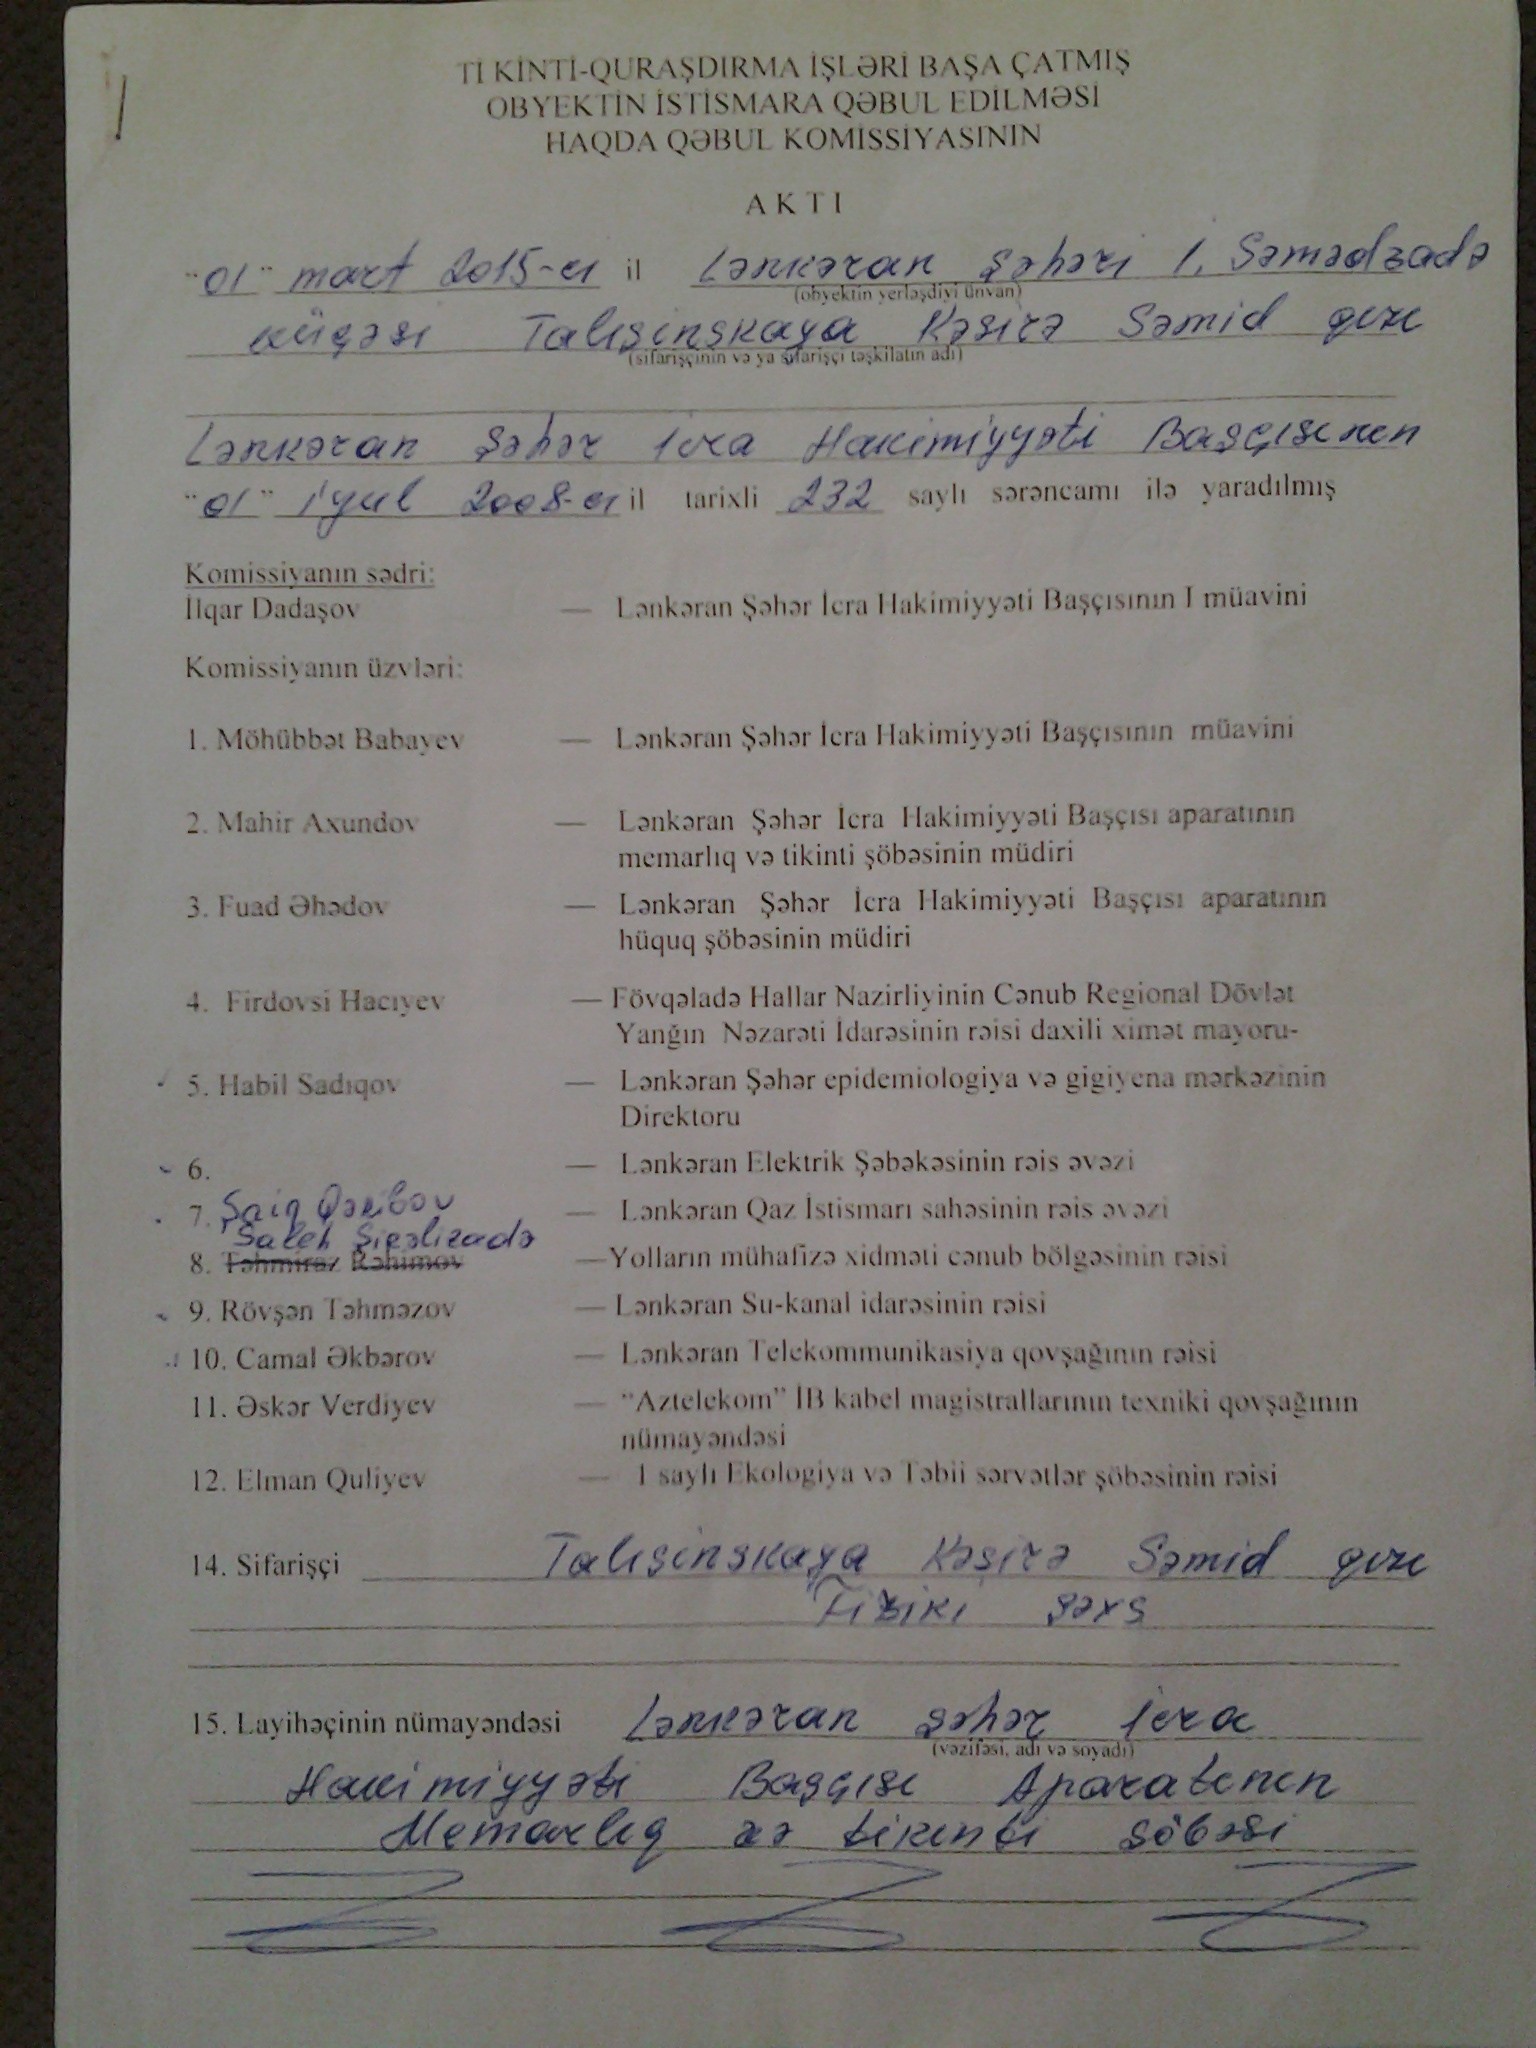 TİKİNTİ-QURAŞDIRMA İŞLƏRİ BAŞA ÇATMIŞ
OBYEKTİN İSTİSMARA QƏBUL EDİLMƏSİ
HAQDA QƏBUL KOMİSSİYASININ
AKTI
"01" mart 2015-ci il Lənkəran şəhəri İ. Səmədzadə
(obyektin yerləşdiyi ünvan)
küçəsi Talışinskaya Kəsirə Səmid qızı
(sifarişçinin və ya sifarişçi təşkilatın adı)
Lənkəran şəhər İcra Hakimiyyəti Başçısının
"01" iyul 2008-ci il tarixli 232 saylı sərəncamı ilə yaradılmış
Komissiyanın sədri:
İlqar Dadaşov — Lənkəran Şəhər İcra Hakimiyyəti Başçısının I müavini
Komissiyanın üzvləri:
1. Möhübbət Babayev — Lənkəran Şəhər İcra Hakimiyyəti Başçısının müavini
2. Mahir Axundov — Lənkəran Şəhər İcra Hakimiyyəti Başçısı aparatının
memarlıq və tikinti şöbəsinin müdiri
3. Fuad Əhədov — Lənkəran Şəhər İcra Hakimiyyəti Başçısı aparatının
hüquq şöbəsinin müdiri
4. Firdovsi Hacıyev — Fövqəladə Hallar Nazirliyinin Cənub Regional Dövlət
Yanğın Nəzarəti İdarəsinin rəisi daxili ximət mayoru-
5. Habil Sadıqov — Lənkəran Şəhər epidemiologiya və gigiyena mərkəzinin
Direktoru
6. — Lənkəran Elektrik Şəbəkəsinin rəis əvəzi
7. Şaiq Qəribov — Lənkəran Qaz İstismarı sahəsinin rəis əvəzi
Saleh Şirəlizadə
8. Təhmiraz Rəhimov —Yolların mühafizə xidməti cənub bölgəsinin rəisi
9. Rövşən Təhməzov — Lənkəran Su-kanal idarəsinin rəisi
10. Camal Əkbərov — Lənkəran Telekommunikasiya qovşağının rəisi
11. Əskər Verdiyev — "Aztelekom" İB kabel magistrallarının texniki qovşağının
nümayəndəsi
12. Elman Quliyev — 1 saylı Ekologiya və Təbii sərvətlər şöbəsinin rəisi
14. Sifarişçi Talışinskaya Kəsirə Səmid qızı
Fiziki şəxs
15. Layihəçinin nümayəndəsi Lənkəran şəhər İcra
(vəzifəsi, adı və soyadı)
Hakimiyyəti Başçısı Aparatının
Memarlıq və tikinti şöbəsi